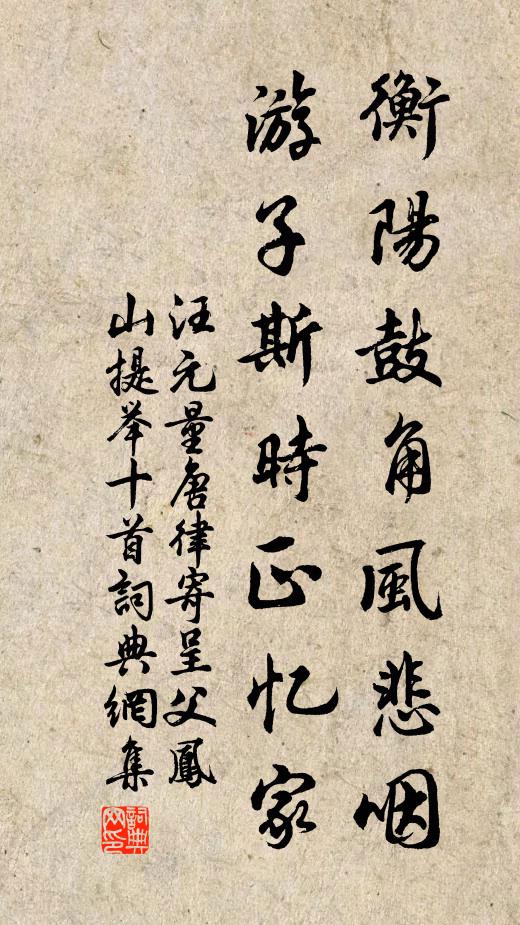 衡陽鼓角風悲咽
游子斯時正忆家
汪元量唐律寄呈父鳳
山提举十首詞典網集
詞典
网印